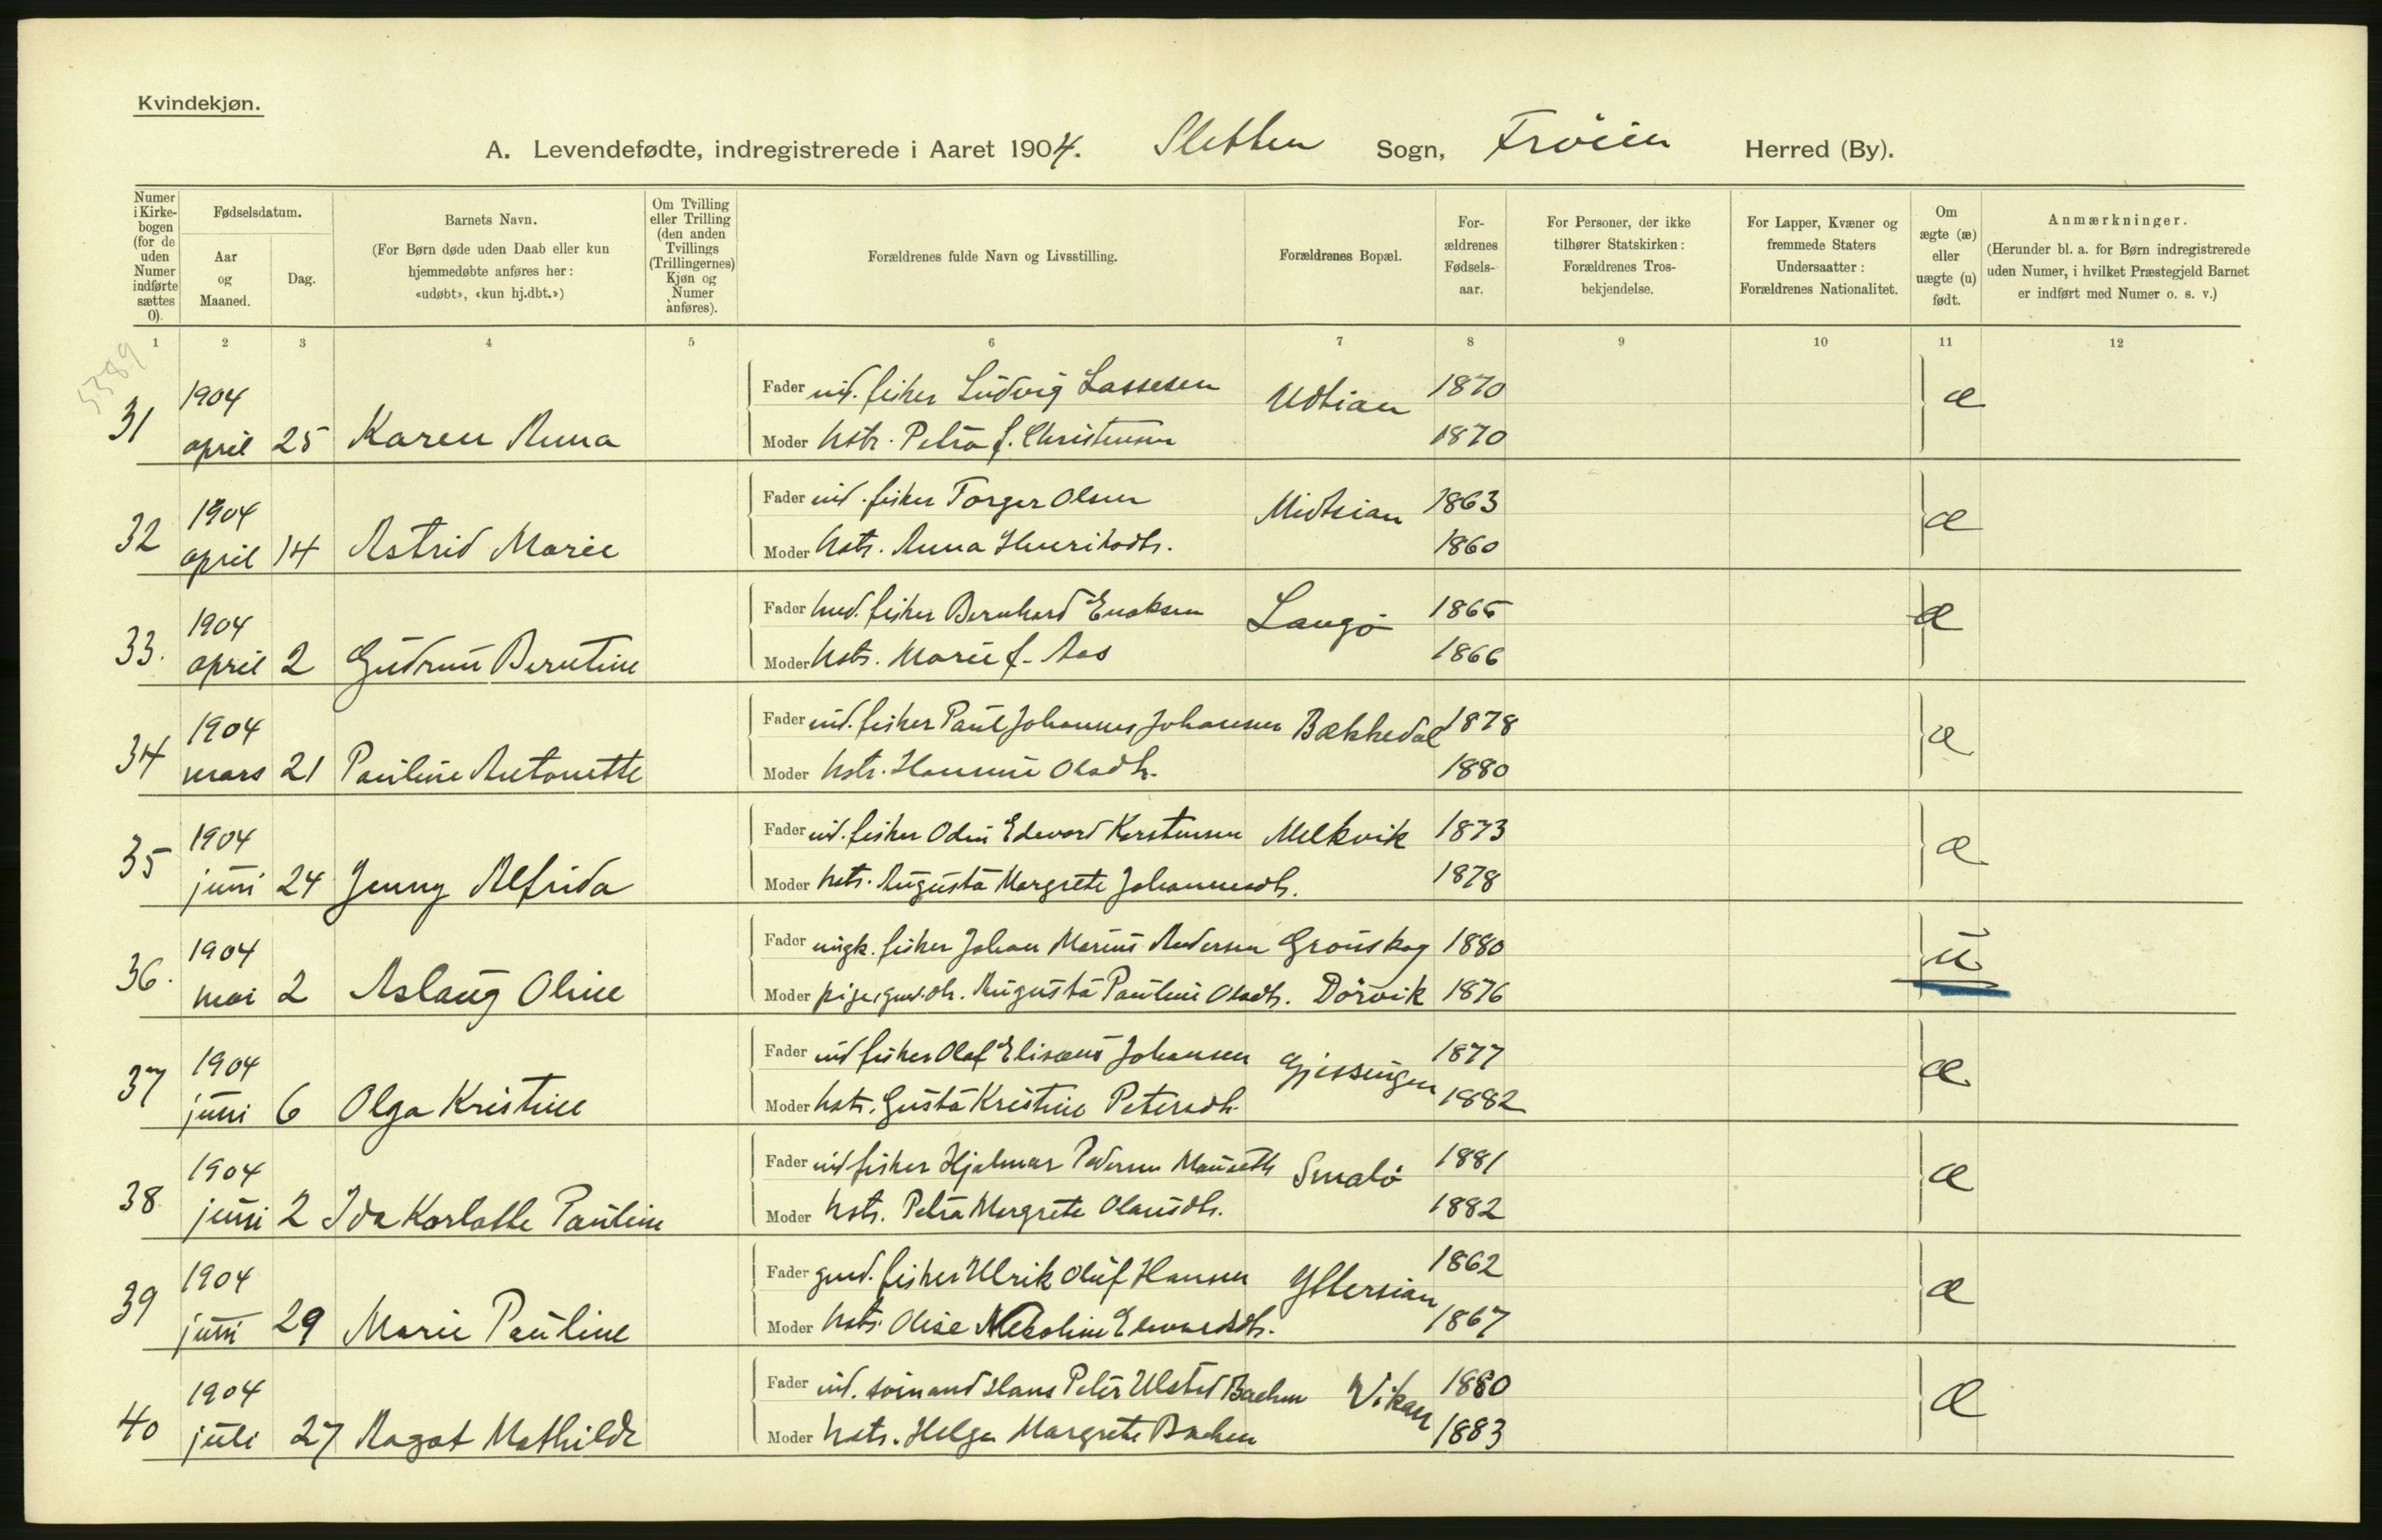 Kvindekjøn.
A. Levendefødte, indregistrerede i Aaret 1904. Sletten Sogn, Frøien Herred (By).
Numer i Kirkebogen (for de uden Numer indførte sættes 0).
Fødselsdatum.
Aar og Maaned.
Dag.
Barnets Navn.
(For Børn døde uden Daab eller kun hjemmedøbte anføres her: «udøbt», «kun hj.dbt.»)
Om Tvilling eller Trilling (den anden Tvillings (Trillingernes) Kjøn og Numer anføres).
Forældrenes fulde Navn og Livsstilling.
Forældrenes Bopæl.
Forældrenes Fødselsaar.
For Personer, der ikke tilhører Statskirken: Forældrenes Trosbekjendelse.
For Lapper, Kvæner og fremmede Staters Undersaatter: Forældrenes Nationalitet.
Om ægte (æ) eller uægte (u) født.
Anmærkninger.
(Herunder bl. a. for Børn indregistrerede uden Numer, i hvilket Præstegjeld Barnet er indført med Numer o. s. v.)
1 2 3 4 5 6 7 8 9 10 11 12
5389
31 1904 april 25 Karen Anna
Fader ind. fisker Ludvig Lassesen Udtian 1870 æ
Moder hstr. Petra f. Christensen 1870
32 1904 april 14 Astrid Marie
Fader ind. fisker Torger Olsen Midtsian 1863 æ
Moder hstr. Anna Henriksdtr. 1860
33. 1904 april 2 Gudrun Berntine
Fader hmd. fisker Bernhard Enoksen Langø 1865 æ
Moder hstr. Marie f. Aas 1866
34 1904 mars 21 Pauline Antonette
Fader ind. fisker Paul Johannes Johansen Bækkedal 1878 æ
Moder hstr. Hansine Olsdtr. 1880
35 1904 juni 24 Jenny Alfrida
Fader ind. fisker Odin Edevard Kerstensen Melkvik 1873 æ
Moder hstr. Augusta Margrete Johannesdtr. 1878
36. 1904 mai 2 Aslaug Oline
Fader ungk. fisker Johan Marius Andersen Grønskag 1880 u
Moder pige, gmd.dtr. Augusta Pauline Olsdtr. Dørvik 1876
37 1904 juni 6 Olga Kristine
Fader ind fisker Olaf Elisæus Johansen Gjessingen 1877 æ
Moder hstr. Gusta Kristine Petersdtr. 1882
38 1904 juni 2 Ida Karlotte Pauline
Fader ind fisker Hjalmar Pedersen Mauseth Smalø 1881 æ
Moder hstr. Petra Margrete Olausdtr. 1882
39 1904 juni 29 Marie Pauline
Fader gmd. fisker Ulrik Oluf Hansen Yttersian 1862 æ
Moder hstr. Olise Nekoline Edvardsdtr. 1867
40 1904 juli 27 Ragot Mathilde
Fader ind. sømand Hans Peter Ulsted Bachen Vikan 1880 æ
Moder hstr. Helga Margrete Bachen 1883